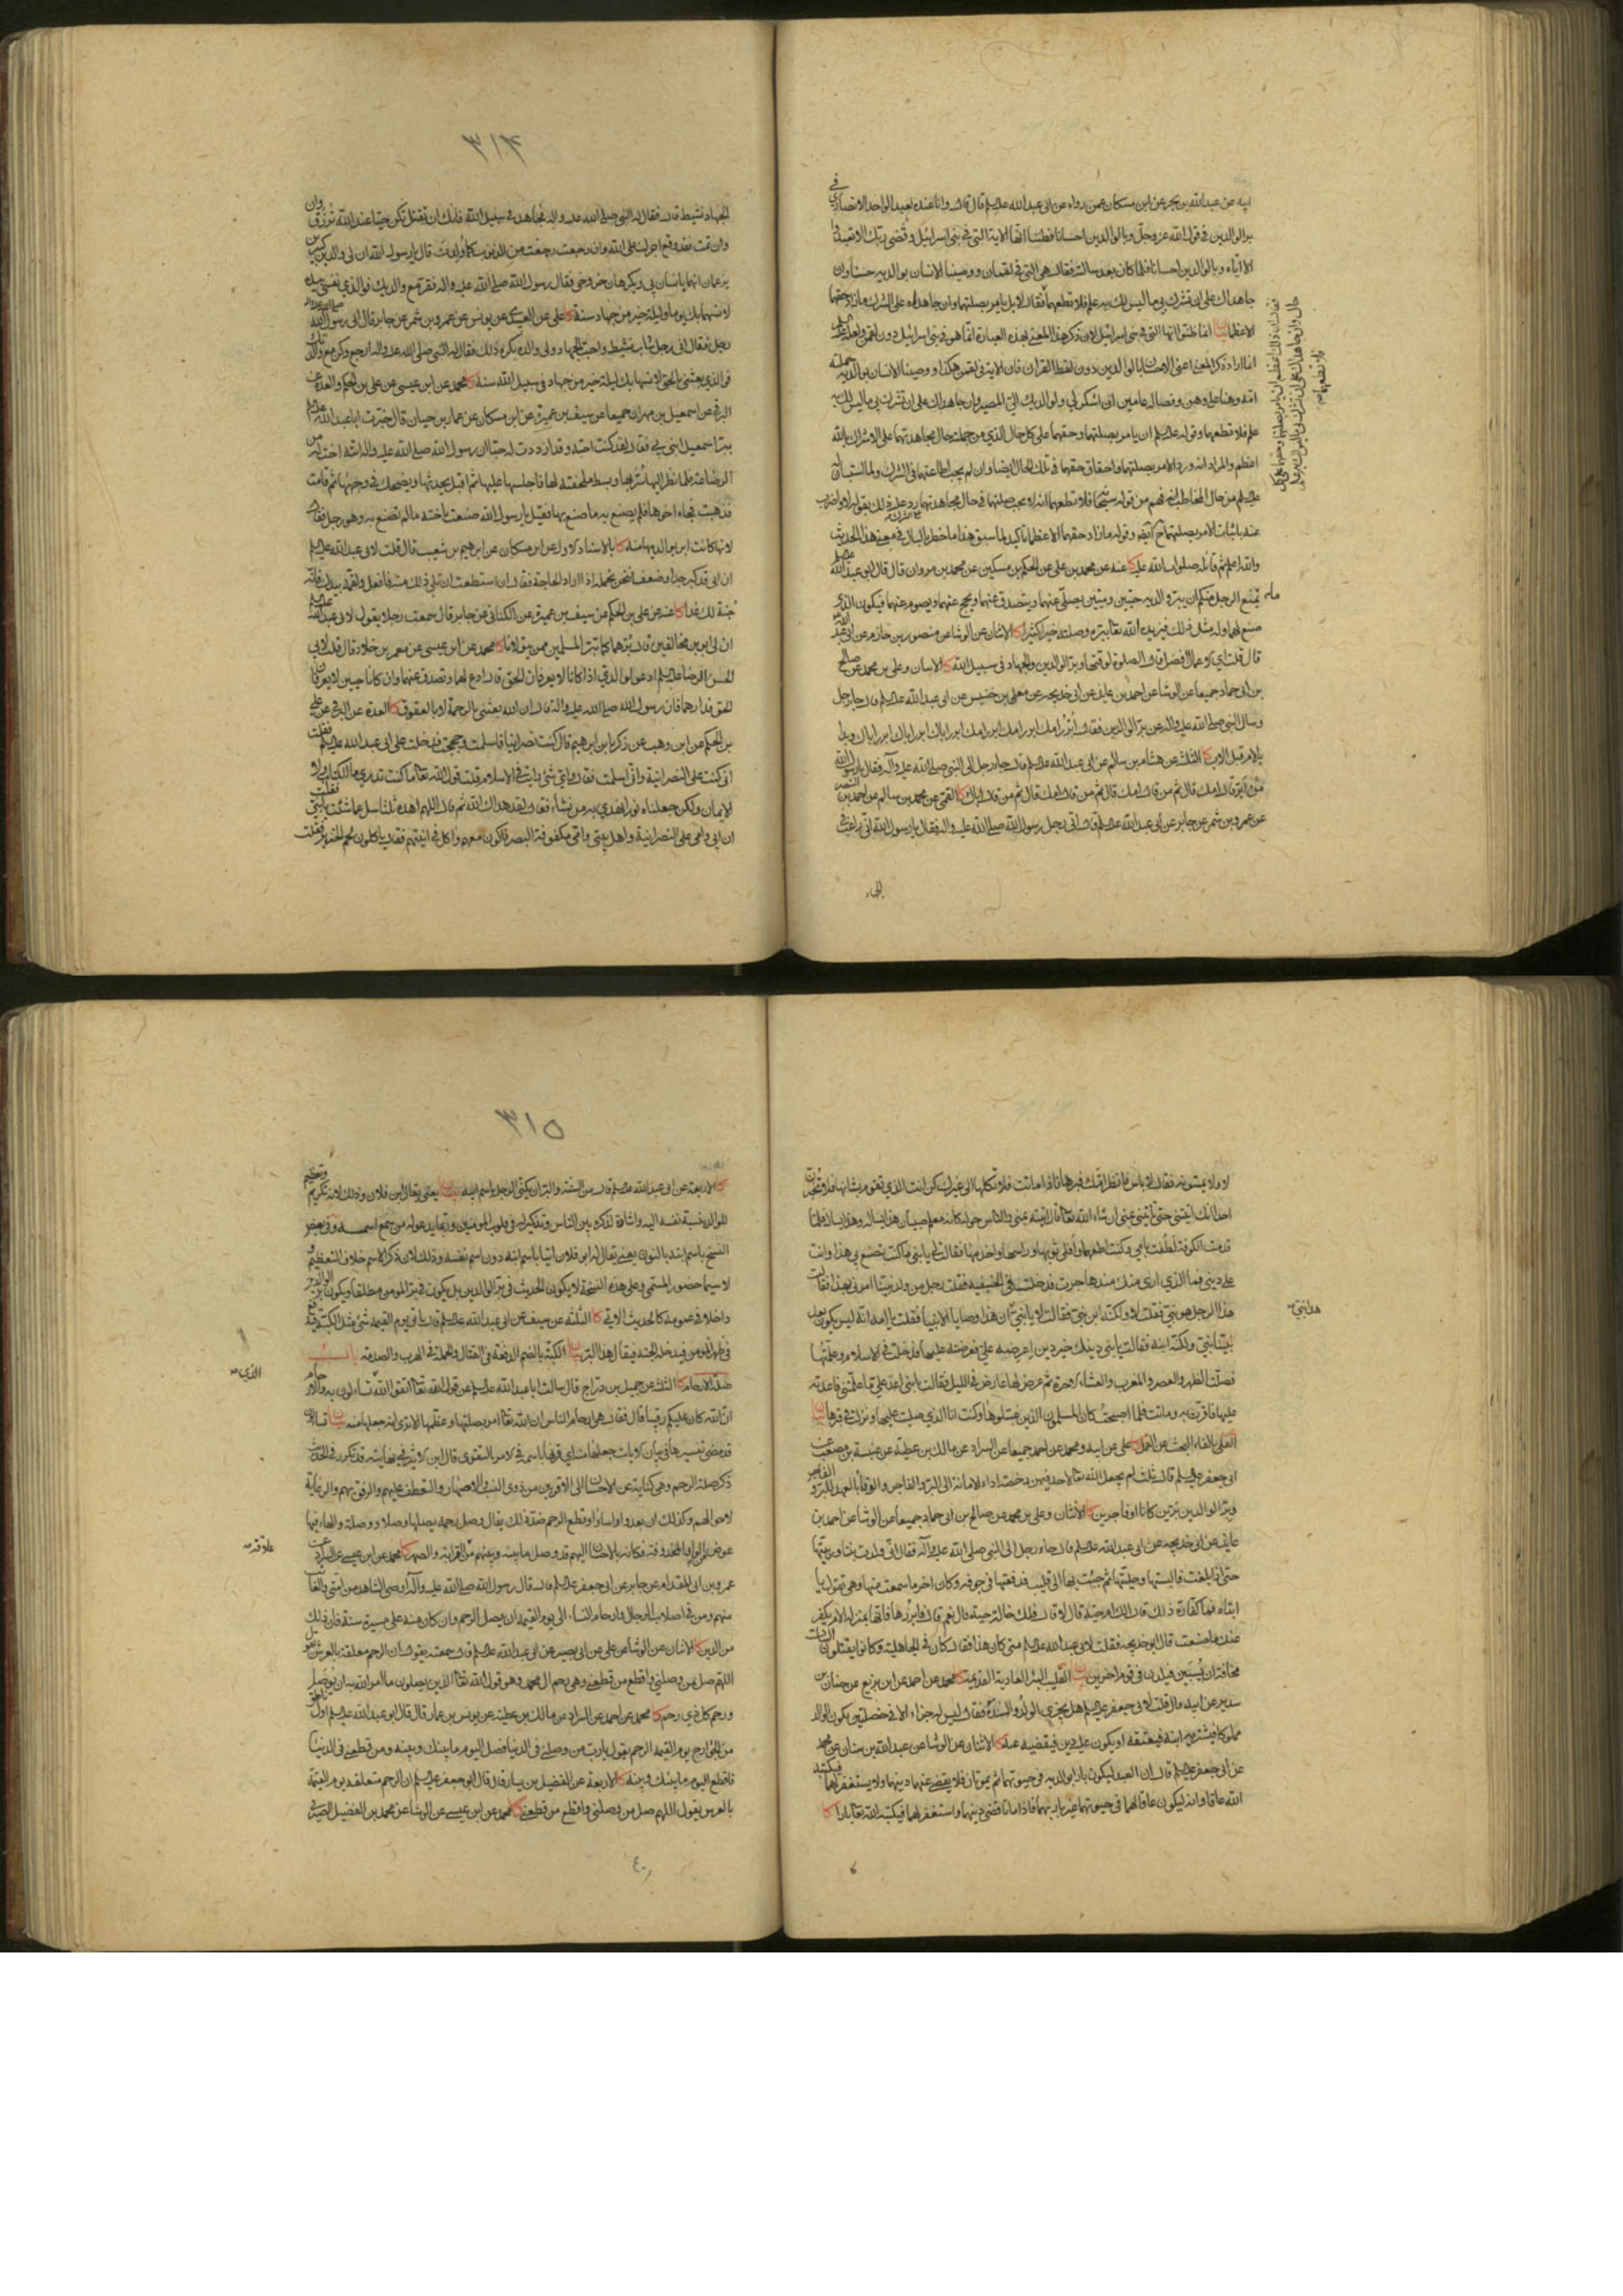 ابيه عن عبدالله بن بحر عن ابن مسكان عمن رواه عن ابى عبدالله عليهلم قال قال وانا عنده لعبد الواحد الانصارى فى
بر الوالدين فى قول الله عز وجل وبالوالدين احسانا فظننا انها الاية التى فى بنى اسرائيل وقضى ربك الا تعبدوا
الا اياه وبالوالدين احسانا فلما كان بعد سالته فقال هى التى فى لقمان ووصينا الانسان بوالديه حسنا وان
جاهداك على ان تشرك بى ما ليس لك به علم فلا تطعهما فقال لا بل يامر بصلتهما وان جاهداه على الشرك ما زاد حقهما
الا عظما بيان انما ظنوا انها التى فى بنى اسرائيل لان ذكر هذا المعنى بهذه العبارة انما هو فى بنى اسرائيل دون لقمن ولعله عليهلم
انما اراد ذكر المعنى اعنى الاحسان بالوالدين دون لفظ القران فان الاية فى لقمن هكذا ووصينا الانسان بوالديه حملته
امه وهنا على وهن وفصاله فى عامين ان اشكر لى ولوالديك الى المصير وان جاهداك على ان تشرك بى ما ليس لك به
علم فلا تطعهما وقوله عليهلم ان يامر بصلتهما وحقهما على كل حال الذى من جملته حال مجاهدتهما على الاشراك بالله
اعظم والمراد انه ورد الامر بصلتهما واحقاق حقهما فى تلك الحال ايضا وان لم يجب اطاعتهما فى الشرك ولما استبان له
عليهلم من حال المخاطب انه فهم من قوله سبحانه فلا تطعهما انه لا يجب صلتهما فى حال مجاهدتهما رد عليه ذلك بقوله لا واضرب
عنه باثبات الامر بصلتهما ح ايضا وقوله ما زاد حقهما الا عظما تاكيد لما سبق هذا ما خطر بالبال فى معنى هذا الحديث
والله اعلم ثم قائله صلوات الله عليه كا عنه عن محمد بن على عن الحكم بن مسكين عن محمد بن مروان قال قال ابو عبدالله عليهلم
ما يمنع الرجل منكم ان يبر والديه حيين وميتين يصلى عنهما ويتصدق عنهما ويحج عنهما ويصوم عنهما فيكون الذى
صنع لهما وله مثل ذلك فيزيده الله تعالى ببره وصلته خيرا كثيرا كا الاثنان عن الوشا عن منصور بن حازم عن ابى عبدالله
قال قلت اى الاعمال افضل قال الصلوة لوقتها وبر الوالدين والجهاد فى سبيل الله كا الاثنان وعلى بن محمد عن صالح
بن ابى حماد جميعا عن الوشا عن احمد بن عايذ عن ابى خديجه عن معلى بن خنيس عن ابى عبد الله عليهلم قال جاء رجل
وسال النبى صلى الله عليه واله عن بر الوالدين فقال ابرر امك ابرر امك ابرر امك ابرر اباك ابرر اباك ابرر اباك وبدا
بالام قبل الاب كا الثلثة عن هشام بن سالم عن ابى عبدالله عليهلم قال جاء رجل الى النبى صلى الله عليه وآله فقال يارسول الله
من ابر قال امك قال ثم من قال امك قال ثم من قال امك قال ثم من قال اباك كا القمى عن محمد بن سالم عن احمد بن النضر
عن عمرو بن شمر عن جابر عن ابى عبدالله عليهلم قال اتى رجل رسول الله صلى الله عليه واله فقال يا رسول الله انى راغب فى
الجهاد
٣١٤
الجهاد نشيط قال فقال له النبى صلى الله عليه واله فجاهد فى سبيل الله فانك ان تقتل تكن حيا عند الله ترزق وان
وان تمت فقد وقع اجرك على الله وان رجعت رجعت من الذنوب كما ولدت قال يا رسول الله ان لى والدين كبيرين
يزعمان انهما يانسان بى ويكرهان خروجى فقال رسول الله صلى الله عليه واله فقر مع والديك فوالذى نفسى بيده
لانسهما بك يوما وليلة خير من جهاد سنة كا على عن العبيدى عن يونس عن عمرو بن شمر عن جابر قال اتى رسول الله صلى الله عليه واله
رجل فقال انى رجل شاب نشيط واحب الجهاد ولى والدة تكره ذلك فقال له النبى صلى الله عليه واله ارجع وكن مع والدتك
فوالذى بعثنى بالحق لانسها بك ليلة خير من جهاد فى سبيل الله سنة كا محمد عن ابن عيسى عن على بن الحكم والعدة عن
البرقى عن اسمعيل بن مهران جميعا عن سيف بن عميرة عن ابن مسكان عن عمار بن حيان قال خبرت ابا عبدالله عليهلم
ببر اسمعيل ابنى بى فقال لقد كنت احبه وقد ازددت له حبا ان رسول الله صلى الله عليه واله اتته اخت له من
الرضاعة فلما نظر اليها سر بها وبسط ملحفته لها فاجلسها عليها ثم اقبل يحدثها ويضحك فى وجهها ثم قامت
فذهبت فجاء اخوها فلم يصنع به ما صنع بها فقيل يارسول الله صنعت باخته ما لم تصنع به وهو رجل فقال
لانها كانت ابر بوالديها منه كا بالاسناد الاول عن ابن مسكان عن ابرهيم بن شعيب قال قلت لابى عبدالله عليهلم
ان ابى قد كبر جدا وضعف فنحن نحمله اذا اراد الحاجة فقال ان استطعت ان تلى ذلك منه فافعل ولقمه بيدك فانه
جنة لك غدا كا عنه عن على بن الحكم عن سيف بن عميرة عن الكنانى عن جابر قال سمعت رجلا يقول لابى عبدالله عليهلم
ان لى ابوين مخالفين قال برهما كما تبر المسلمين ممن يتولانا كا محمد عن ابن عيسى عن معمر بن خلاد قال قلت لابى
الحسن الرضا عليهلم ادعو لوالدى اذا كانا لا يعرفان الحق قال ادع لهما وتصدق عنهما وان كانا حيين لا يعرفان
الحق فدارهما فان رسول الله صلى الله عليه واله قال ان الله بعثنى بالرحمة لا بالعقوق كا العدة عن البرقى عن على
بن الحكم عن ابن وهب عن زكريا بن ابرهيم قال كنت نصرانيا فاسلمت وحججت فدخلت على ابى عبدالله عليهلم فقلت
انى كنت على النصرانية وانى اسلمت فقال واى شئ رايت فى الاسلام قلت قول الله تعالى ما كنت تدرى ما الكتاب ولا
الايمان ولكن جعلناه نورا نهدى به من نشاء فقال لقد هداك الله ثم قال اللهم اهده ثلثا سل عما شئت يا بنى فقلت
ان ابى وامى على النصرانية واهل بيتى وامى مكفوفة البصر فاكون معهم واكل فى انيتهم فقال ياكلون لحم الخنزير فقلت
لا ولا يمسونه فقال لا باس فانظر امك فبرها فاذا ماتت فلا تكلها الى غيرك كن انت الذى تقوم بشانها فلا تخبرن
احدا انك اتيتنى حتى تاتينى بمنى ان شاء الله تعالى قال فاتيته بمنى والناس حوله كانه معلم صبيان هذا يساله وهذا يساله فلما
قدمت الكوفة لطفت بامى وكنت اطعمها وافلى ثوبها وراسها واخدمها فقالت لى يا بنى ما كنت تصنع بى هذا وانت
على دينى فما الذى ارى منك منذ هاجرت فدخلت فى الحنيفية فقلت رجل من ولد نبينا امرنى بهذا فقالت
هذا الرجل هو نبى فقلت لا ولكنه ابن نبى فقالت لا يا بنى ان هذا وصايا الانبيا فقلت يا امه انه ليس يكون بعد
نبينا نبى ولكنه ابنه فقالت يا بنى دينك خير دين اعرضه على فعرضته عليها فدخلت فى الاسلام وعلمتها
فصلت الظهر والعصر والمغرب والعشاء الاخرة ثم عرض لها عارض فى الليل فقالت يا بنى اعد على ما علمتنى فاعدته
عليها فاقرت به وماتت فلما اصبحت كان المسلمون الذين غسلوها وكنت انا الذى صليت عليها ونزلت فى قبرها بيان
الفلى بالفاء البحث عن القمل كا على عن ابيه ومحمد عن احمد جميعا عن السراد عن مالك بن عطية عن عنبسة بن مصعب عن
ابى جعفر عليهلم قال ثلث لم يجعل الله تعالى لاحد فيهن رخصة اداء الامانة الى البر والفاجر والوفا بالعهد للبر والفاجر
وبر الوالدين برين كانا او فاجرين كا الاثنان وعلى بن محمد عن صالح بن ابى حماد جميعا عن الوشا عن احمد بن
عايذ عن ابى خديجه عن ابى عبدالله عليهلم قال جاء رجل الى النبى صلى الله عليه وآله فقال انى ولدت بنتا وربيتها
حتى اذا بلغت فالبستها وحليتها ثم جئت بها الى قليب فدفعتها فى جوفه وكان اخر ما سمعت منها وهى تقول يا
ابتاه فما كفارة ذلك قال الك ام حية قال لا قال فلك خالة حية قال نعم قال فابررها فانها بمنزلة الام يكفر
عنك ما صنعت قال ابو خديجه فقلت لابى عبدالله عليهلم متى كان هذا فقال كان فى الجاهلية وكانوا يقتلون البنات
مخافة ان يسبين فيلدن فى قوم اخرين بيان القليب البئر العادية القديمة كا محمد عن احمد عن ابن بزيع عن حنان بن
سدير عن ابيه قال قلت لابى جعفر عليهلم هل يجزى الولد والده فقال ليس له جزاء الا فى خصلتين يكون الوالد
مملوكا فيشتريه ابنه فيعتقه او يكون عليه دين فيقضيه عنه كا الاثنان عن الوشا عن عبدالله بن سنان عن محمد
عن ابى جعفر عليهلم قال ان العبد ليكون بارا بوالديه فى حيوتهما ثم يموتان فلا يقضى عنهما دينهما ولا يستغفر لهما فيكتبه
الله عاقا وانه ليكون عاقا لهما فى حيوتهما غير بار بهما فاذا ماتا قضى دينهما واستغفر لهما فيكتبه الله تعالى بارا كا
٣١٥
كا الاربعة عن ابى عبدالله عليهلم قال من السنة والبر ان يكنى الرجل باسم ابنه بيان يعنى يقال ابن فلان وذلك لانه تكريم وتعظيم
للوالد بنسبة نفسه اليه واشادة لذكره بين الناس وتذكير له فى قلوب المومنين وربما يدعو له من سمع اسمه وفى بعض
النسخ باسم ابنه بالنون يعنى يقال له ابو فلان اتيا باسم ابنه دون اسم نفسه وذلك لان ذكر الاسم خلاف التعظيم و
لا سيما حضور المسمى وعلى هذه النسخة لا يكون الحديث فى بر الوالدين بل يكون فى بر المومن مطلقا ويكون بر الوالدين
داخلا فى عمومه كالحديث الاتى كا الثلثة عن سيف عن ابى عبدالله عليهلم قال ياتى يوم القيمة شئ مثل الكبة فيدفع
فى ظهر المومن فيدخله الجنة فيقال هذا البر بيان الكبة بالضم الدفعة فى القتال والحملة فى الحرب والصدمة باب
صلة الارحام كا الثلثة عن جميل بن دراج قال سالت ابا عبدالله عليهلم عن قول الله تعالى اتقوا الله الذى تساءلون به والارحام
ان الله كان عليكم رقيبا قال فقال هى ارحام الناس ان الله تعالى امر بصلتها وعظمها الا ترى انه جعلها منه بيان
قد مضى تفسيرها فى بيان جعلها منه اى قرنها باسمه فى الامر بالتقوى قال ابن الاثير فى نهايته قد تكرر فى الحديث
ذكر صلة الرحم وهى كناية عن الاحسان الى الاقربين من ذوى النسب والاصهار والتعطف عليهم والرفق بهم والرعاية
لاحوالهم وكذلك ان بعدوا واساؤا وقطع الرحم ضد ذلك يقال وصل رحمه يصلها وصلا ووصلة والهاء فيها
عوض من الواو المحذوفة فكانه بالاحسان اليهم قد وصل ما بينه وبينهم من علاقة القرابة والصهر كا محمد عن ابن عيسى عن السراد عن
عمرو بن ابى المقدام عن جابر عن ابى جعفر عليهلم قال قال رسول الله صلى الله عليه وآله اوصى الشاهد من امتى والغائب
منهم ومن فى اصلاب الرجال وارحام النساء الى يوم القيمة ان يصل الرحم وان كان منه على مسيرة سنة فان ذلك
من الدين كا الاثنان عن الوشا عن على عن ابى بصير عن ابى عبدالله عليهلم قال سمعته يقول ان الرحم معلقة بالعرش تقول
اللهم صل من وصلنى واقطع من قطعنى وهى رحم ال محمد وهو قول الله تعالى الذين يصلون ما امر الله به ان يوصل
ورحم كل ذى رحم كا محمد عن احمد عن السراد عن مالك بن عطية عن يونس بن عمار قال قال ابو عبدالله عليهلم اول ناطق
من الجوارح يوم القيمة الرحم يقول يا رب من وصلنى فى الدنيا فصل اليوم ما بينك وبينه ومن قطعنى فى الدنيا
فاقطع اليوم ما بينك وبينه كا الاربعة عن الفضيل بن يسار قال قال ابو جعفر عليهلم ان الرحم متعلقة يوم القيمة
بالعرش يقول اللهم صل من وصلنى واقطع من قطعنى كا محمد عن ابن عيسى عن الوشا عن محمد بن الفضيل الصيرفى